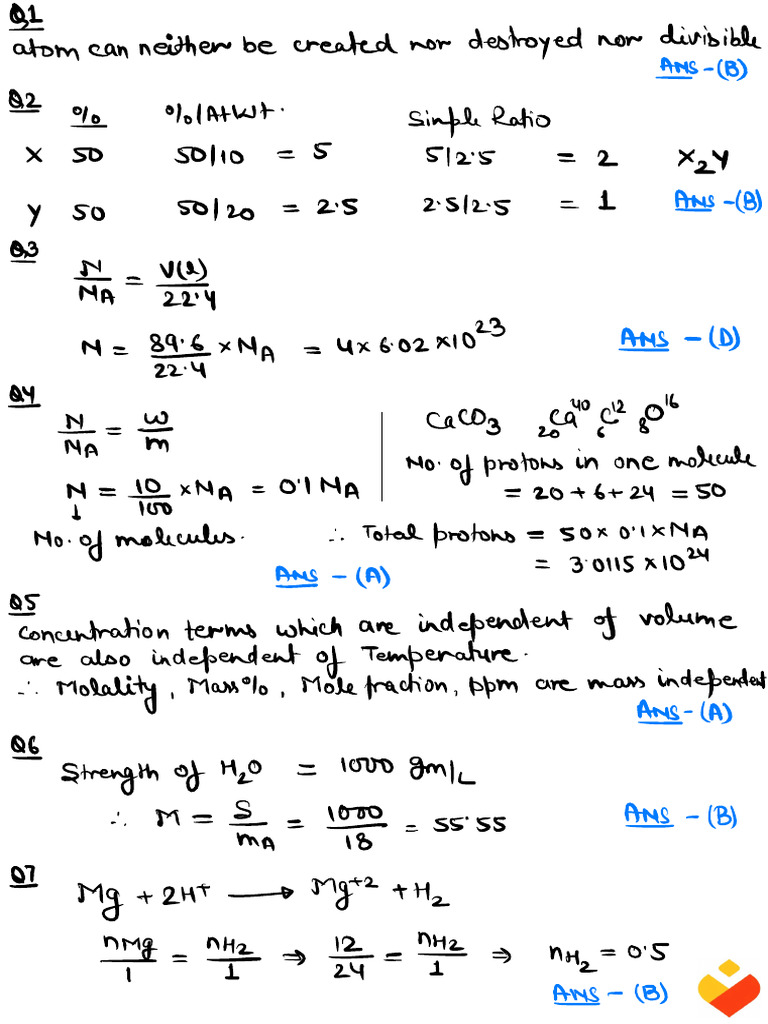 Q1
atom can neither be created nor destroyed nor divisible
Ans - (B)
Q2
% %/At Wt. Simple Ratio
X 50 50/10 = 5 5/2.5 = 2 X₂Y
Y 50 50/20 = 2.5 2.5/2.5 = 1 Ans - (B)
Q3
N/NA = V(l)/22.4
N = 89.6/22.4 × NA = 4 × 6.02 × 10²³ Ans - (D)
Q4
N/NA = w/m
N = 10/100 × NA = 0.1 NA
↓
No. of molecules.
CaCO₃ ₂₀Ca⁴⁰ ₆C¹² ₈O¹⁶
No. of protons in one molecule
= 20 + 6 + 24 = 50
∴ Total protons = 50 × 0.1 × NA
= 3.0115 × 10²⁴
Ans - (A)
Q5
Concentration terms which are independent of volume
are also independent of Temperature.
∴ Molality, Mass %, Mole fraction, ppm are mass independent
Ans - (A)
Q6
Strength of H₂O = 1000 gm/L
∴ M = S/mA = 1000/18 = 55.55 Ans - (B)
Q7
Mg + 2H⁺ ⟶ Mg⁺² + H₂
nMg/1 = nH₂/1 ⇒ 12/24 = nH₂/1 ⇒ nH₂ = 0.5
Ans - (B)